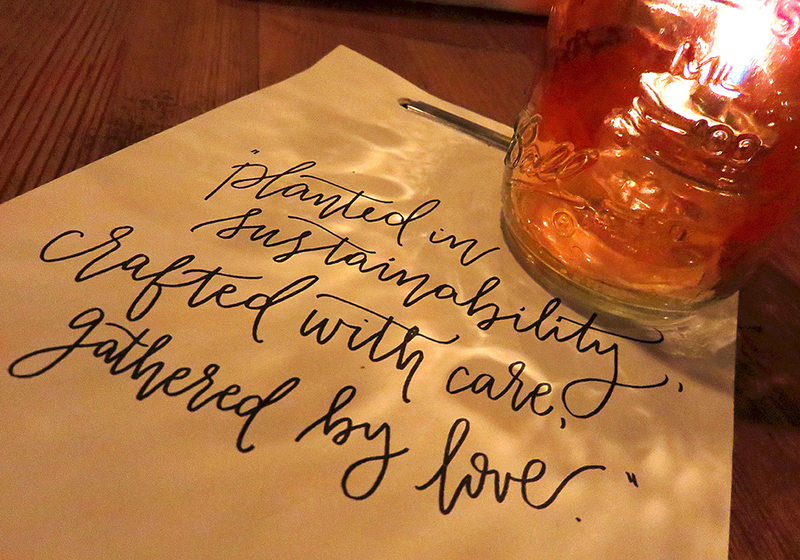 "planted in
sustainability,
crafted with care,
gathered by love."
Ball